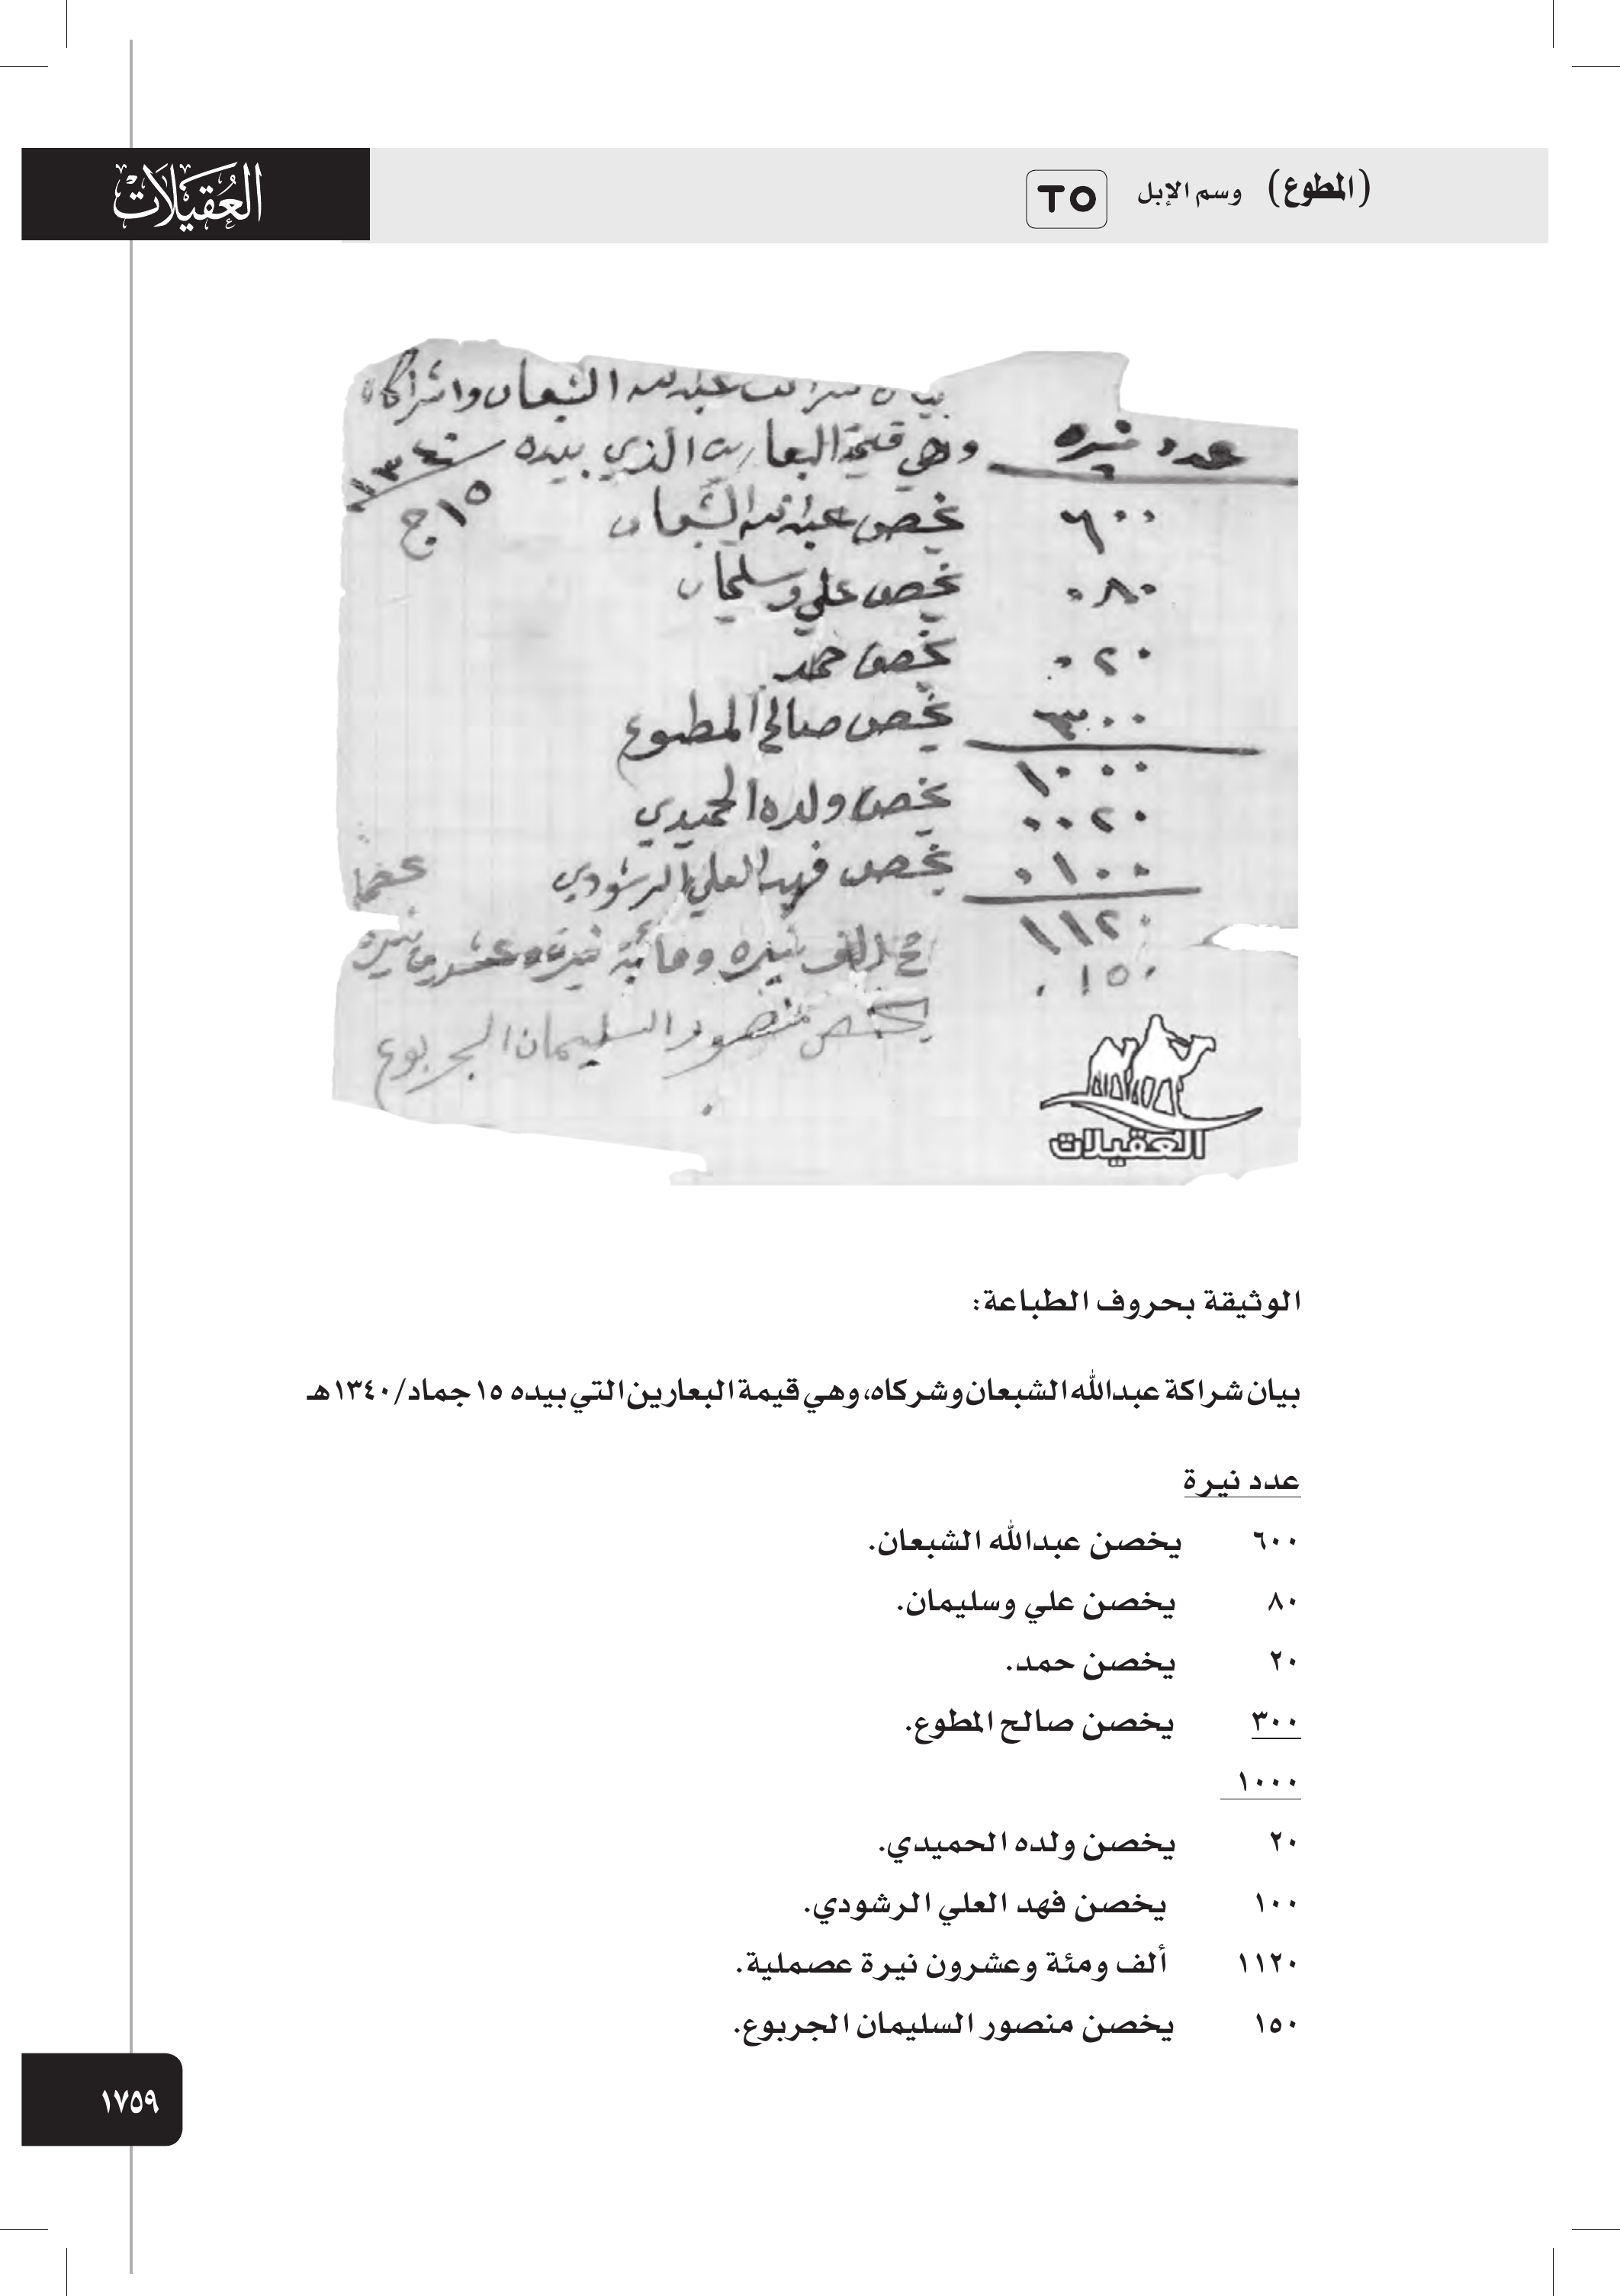 (المطوع) وسم الإبل TO
العقيلات
عدد نيره
وشراكاه الشبعان عبدالله
وهي قيمة البعارين الذي بيده ١٣٤٠
١٥ ج
٦٠٠ يخصن عبدالله الشبعان
٠٨٠ يخصن علي وسليمان
٠٢٠ يخصن حمد
٣٠٠ يخصن صالح المطوع
١٠٠٠
٠٠٢٠ يخصن ولده الحميدي
٠١٠٠ يخصن فهد العلي الرشودي
١١٢٠ الف نيره ومائة نيره وعشرين نيره
٠١٥٠ يخصن منصور السليمان الجربوع
العقيلات
الوثيقة بحروف الطباعة:
بيان شراكة عبدالله الشبعان وشركاه، وهي قيمة البعارين التي بيده ١٥ جماد/١٣٤٠هـ
عدد نيرة
٦٠٠ يخصن عبدالله الشبعان.
٨٠ يخصن علي وسليمان.
٢٠ يخصن حمد.
٣٠٠ يخصن صالح المطوع.
١٠٠٠
٢٠ يخصن ولده الحميدي.
١٠٠ يخصن فهد العلي الرشودي.
١١٢٠ ألف ومئة وعشرون نيرة عصملية.
١٥٠ يخصن منصور السليمان الجربوع.
١٧٥٩